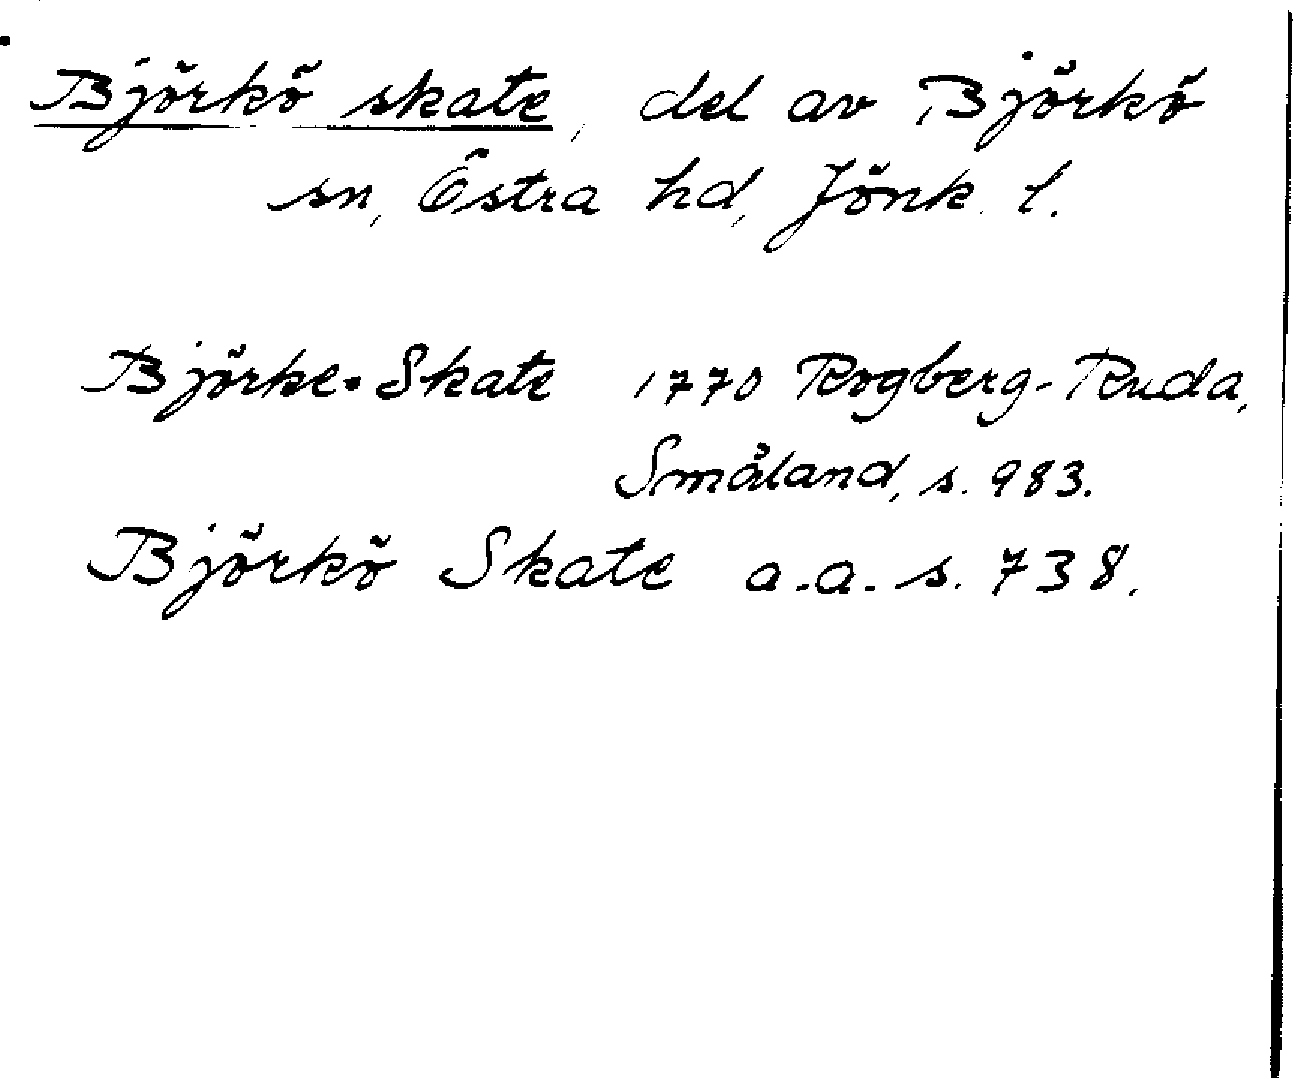 Björkö skate, del av Björkö
sn, Östra hd, Jönk. l.
Björke-Skate 1770 Rogberg-Ruda,
Småland, s. 983.
Björkö Skate a.a. s. 738.